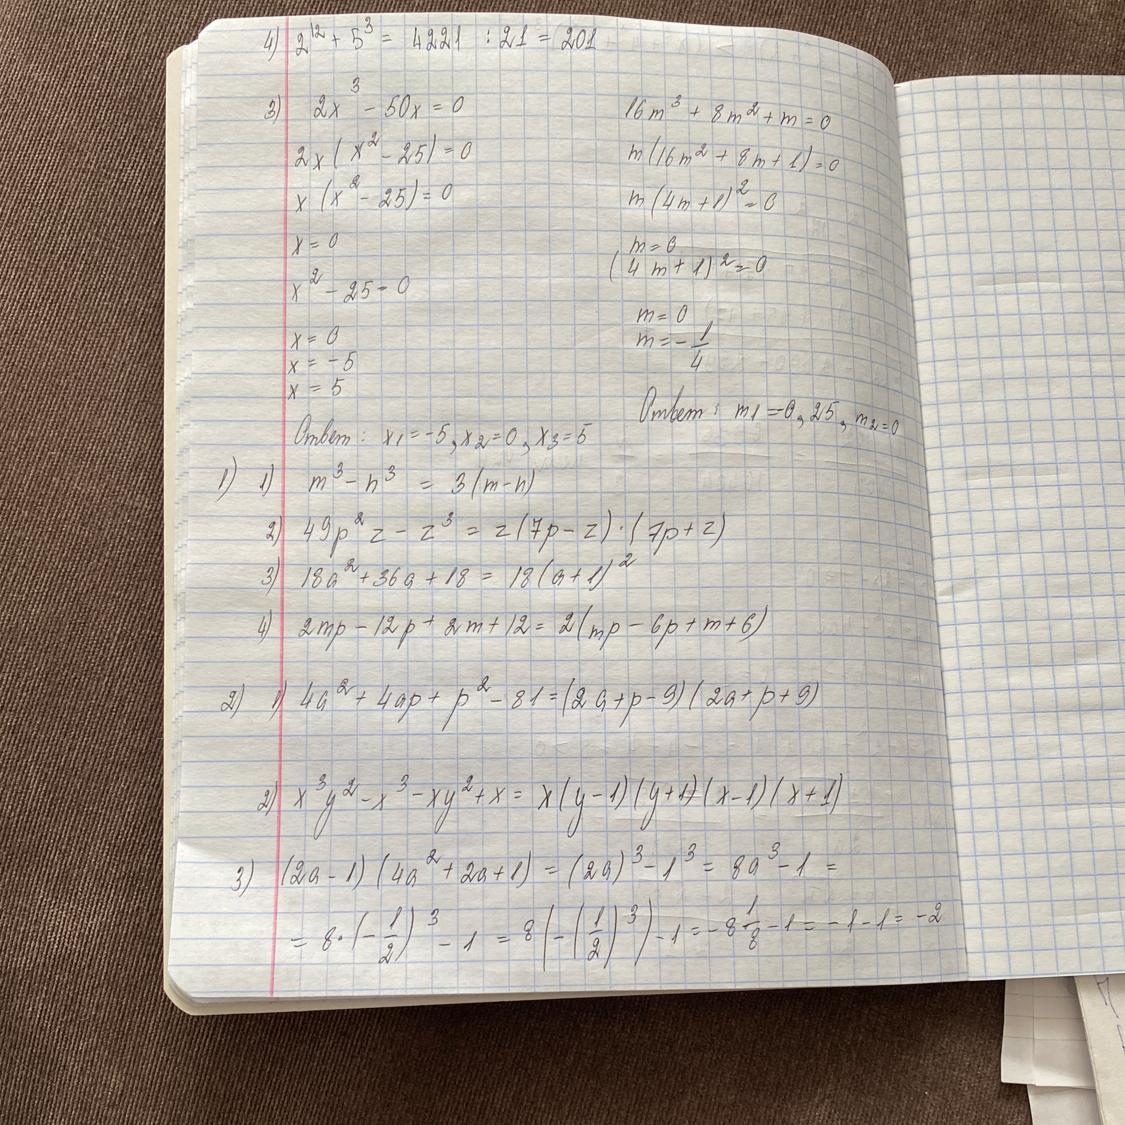 4) 2¹² + 5³ = 4221 : 21 = 201
3) 2x³ - 50x = 0
2x(x² - 25) = 0
x(x² - 25) = 0
x = 0
x² - 25 = 0
x = 0
x = -5
x = 5
Ответ: x1 = -5, x2 = 0, x3 = 5
16m³ + 8m² + m = 0
m(16m² + 8m + 1) = 0
m(4m + 1)² = 0
m = 0
(4m + 1)² = 0
m = 0
m = -1/4
Ответ: m1 = -0,25, m2 = 0
1) 1) m³ - n³ = 3(m - n)
2) 49p²z - z³ = z(7p - z) · (7p + z)
3) 18a² + 36a + 18 = 18(a + 1)²
4) 2mp - 12p + 2m + 12 = 2(mp - 6p + m + 6)
2) 1) 4a² + 4ap + p² - 81 = (2a + p - 9)(2a + p + 9)
2) x³y² - x³ - xy² + x = x(y - 1)(y + 1)(x - 1)(x + 1)
3) (2a - 1)(4a² + 2a + 1) = (2a)³ - 1³ = 8a³ - 1 =
= 8 · (-1/2)³ - 1 = 8(-(1/2)³) - 1 = -8 1/8 - 1 = -1 - 1 = -2